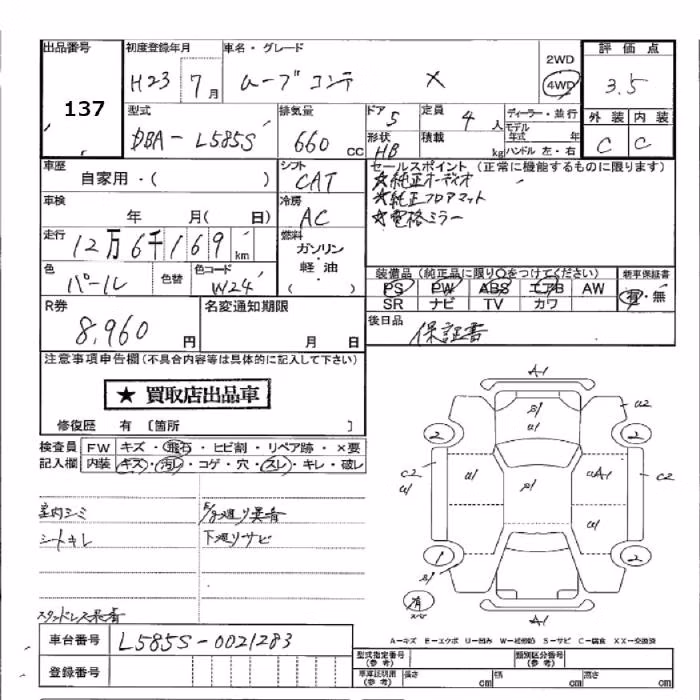 出品番号 初度登録年月 車名・グレード 2WD 評価点
137 H23 7月 ムーブコンテ X 4WD 3.5
型式 排気量 ドア 5 定員 4人 ディーラー・並行 外装 内装
DBA-L585S 660cc 形状 HB 積載 kg モデル年式 年 ハンドル 左・右 C C
車歴 シフト セールスポイント (正常に機能するものに限ります)
自家用・( ) CAT ☆純正オーディオ
車検 冷房 ☆純正フロアマット
年 月( 日) AC ☆電格ミラー
走行 燃料
12万6千169km ガソリン・軽油・( )
色 色替 色コード 装備品(純正品に限り○をつけてください) 新車保証書
パール W24 PS PW ABS エアB AW 有・無
SR ナビ TV カワ
R券 名変通知期限 後日品
8,960円 月 日 保証書
注意事項申告欄(不具合内容等は具体的に記入して下さい)
★ 買取店出品車
修復歴 有 〔箇所 〕
検査員 FW キズ・飛石・ヒビ割・リペア跡・×要
記入欄 内装 キズ・汚レ・コゲ・穴・スレ・キレ・破レ
室内シミ
シートキレ 下廻りサビ
A1
U2
2 2
C2 C2
1 2
有
A1
車台番号 L585S-0021283
登録番号
A-キズ E-エクボ U-凹み W-補修跡 S-サビ C-腐食 XX-交換済
型式指定番号(参考) 類別区分番号(参考)
車庫証明用(参考) 長さ cm 幅 cm 高さ cm